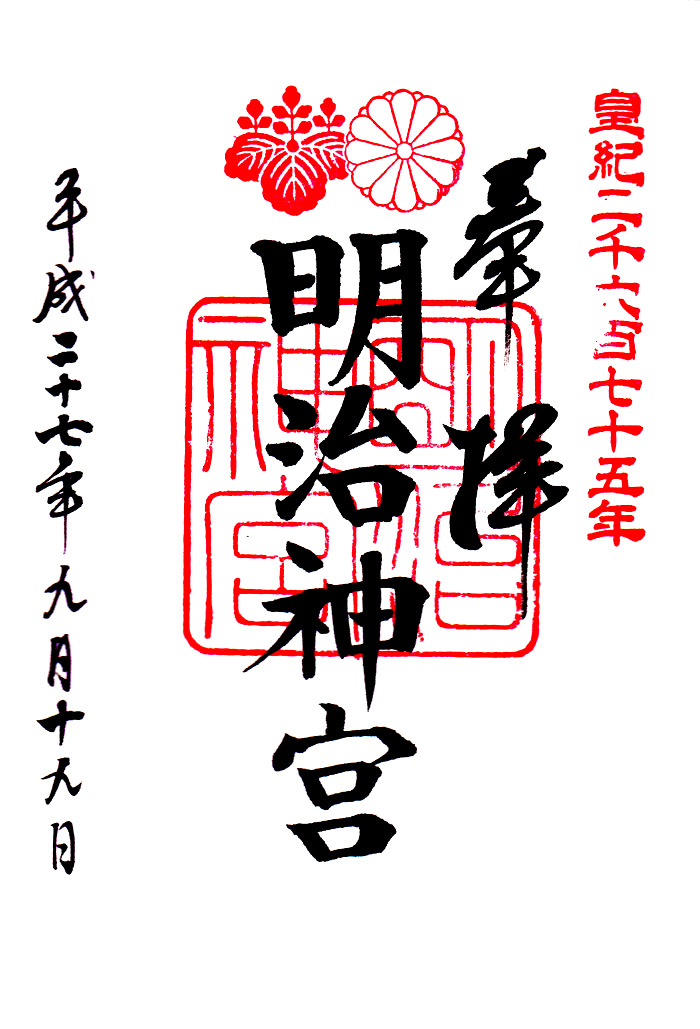 皇紀二千六百七十五年
奉拝
明治神宮
明治神宮
平成二十七年九月十九日